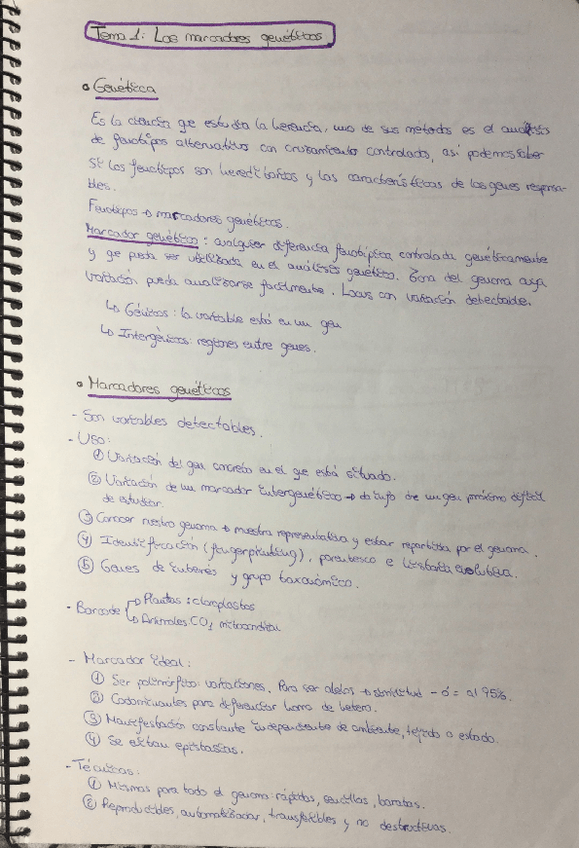 Tema 1: Los marcadores genéticos
• Genética
Es la ciencia que estudia la herencia, uno de sus métodos es el análisis
de fenotipos alternativos con cruzamiento controlado, así podemos saber
si los fenotipos son hereditarios y las características de los genes responsa-
bles.
Fenotipos → marcadores genéticos.
Marcador genético: cualquier diferencia fenotípica controlada genéticamente
y que pueda ser utilizada en el análisis genético. Zona del genoma cuya
variación pueda analizarse facilmente. Locus con variación detectable.
↳ Génicos: la variable está en un gen
↳ Intergénicos: regiones entre genes.
• Marcadores genéticos
- Son variables detectables.
- Uso:
① Variación del gen concreto en el que está situado.
② Variación de un marcador intergenético → da info de un gen próximo difícil
de estudiar.
③ Conocer nuestro genoma → muestra representativa y estar repartida por el genoma.
④ Identificación (fingerprinting), parentesco e historia evolutiva.
⑤ Genes de interés y grupo taxonómico.
- Barcode ↳ Plantas: cloroplastos
↳ Animales: CO1 mitocondrial
- Marcador ideal:
① Ser polimórfico: variaciones. Para ser alelos → similitud - ó = al 95%.
② Codominantes para diferenciar homo de hetero.
③ Manifestación constante independiente de ambiente, tejido o estado.
④ Se evitan epistasias.
- Técnicas:
① Mismas para todo el genoma: rápidas, sencillas, baratas.
② Reproducibles, automatizadas, transferibles y no destructivas.